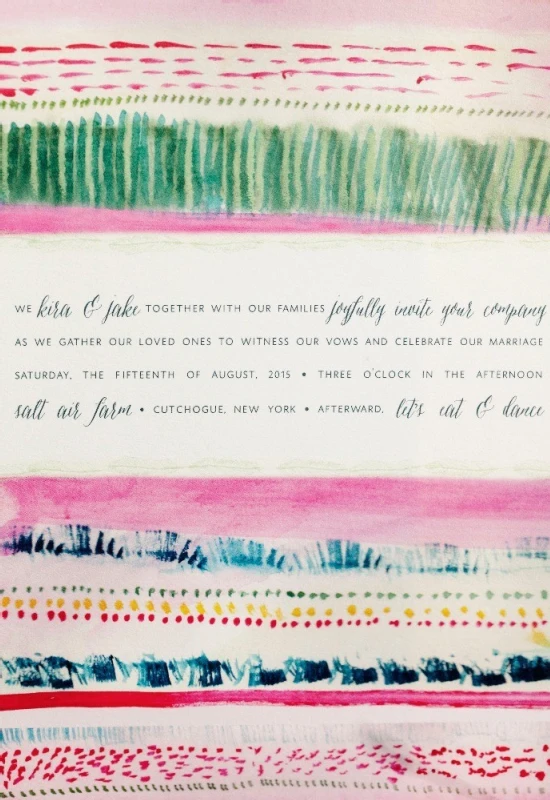 WE kira & jake TOGETHER WITH OUR FAMILIES joyfully invite your company
AS WE GATHER OUR LOVED ONES TO WITNESS OUR VOWS AND CELEBRATE OUR MARRIAGE
SATURDAY, THE FIFTEENTH OF AUGUST, 2015 • THREE O'CLOCK IN THE AFTERNOON
salt air farm • CUTCHOGUE, NEW YORK • AFTERWARD, let's eat & dance